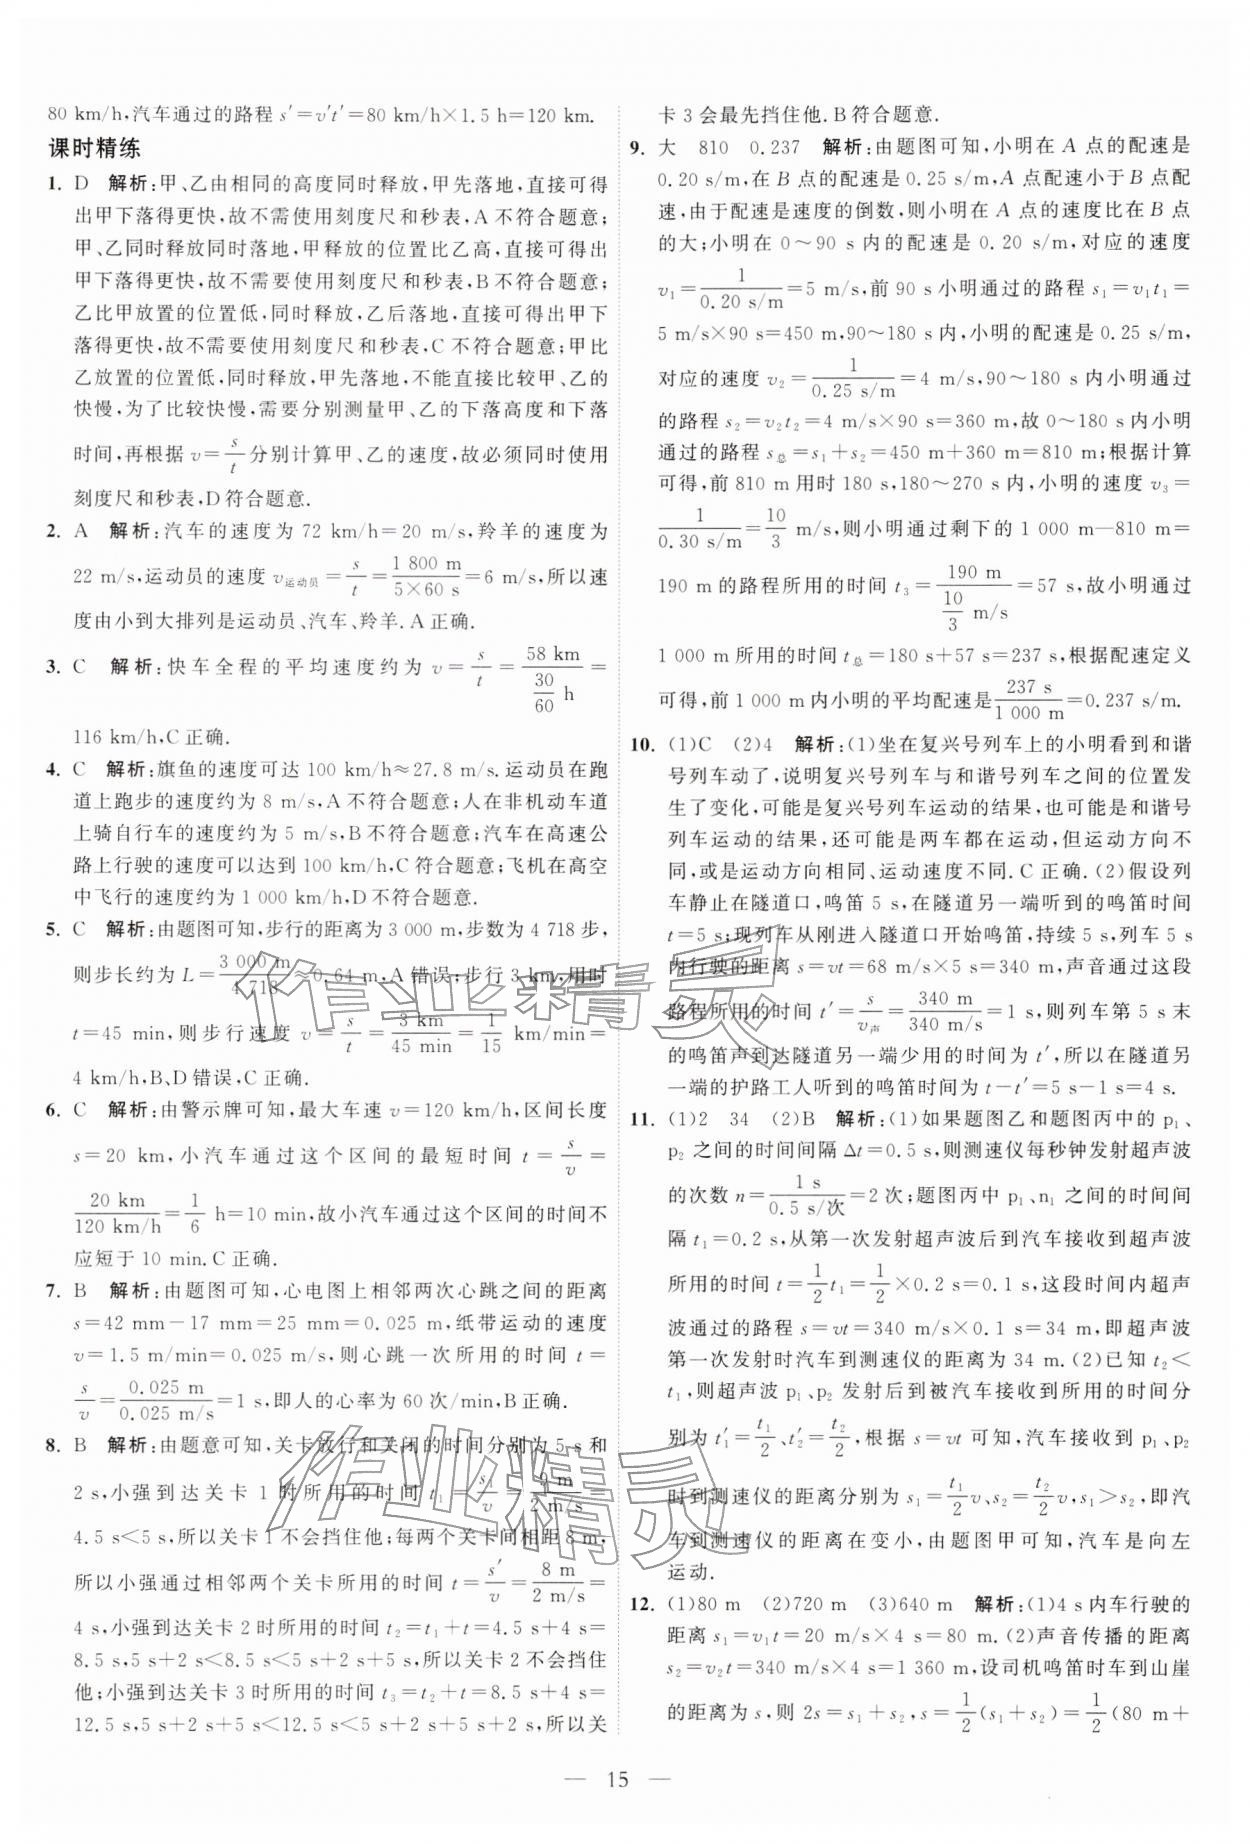 80 km/h,汽车通过的路程 s′=v′t′=80 km/h×1.5 h=120 km.
课时精练
1. D 解析:甲、乙由相同的高度同时释放,甲先落地,直接可得
出甲下落得更快,故不需使用刻度尺和秒表,A 不符合题意;
甲、乙同时释放同时落地,甲释放的位置比乙高,直接可得出
甲下落得更快,故不需要使用刻度尺和秒表,B不符合题意;
乙比甲放置的位置低,同时释放,乙后落地,直接可得出甲下
落得更快,故不需要使用刻度尺和秒表,C不符合题意;甲比
乙放置的位置低,同时释放,甲先落地,不能直接比较甲、乙的
快慢,为了比较快慢,需要分别测量甲、乙的下落高度和下落
时间,再根据 v=s/t分别计算甲、乙的速度,故必须同时使用
刻度尺和秒表,D符合题意.
2. A 解析:汽车的速度为 72 km/h=20 m/s,羚羊的速度为
22 m/s,运动员的速度 v运动员=s/t=1 800 m/5×60 s=6 m/s,所以速
度由小到大排列是运动员、汽车、羚羊.A正确.
3. C 解析:快车全程的平均速度约为 v=s/t=58 km/(30/60 h)=
116 km/h,C正确.
4. C 解析:旗鱼的速度可达 100 km/h≈27.8 m/s.运动员在跑
道上跑步的速度约为 8 m/s,A不符合题意;人在非机动车道
上骑自行车的速度约为 5 m/s,B不符合题意;汽车在高速公
路上行驶的速度可以达到 100 km/h,C符合题意;飞机在高空
中飞行的速度约为 1 000 km/h,D不符合题意.
5. C 解析:由题图可知,步行的距离为 3 000 m,步数为 4 718 步,
则步长约为 L=3 000 m/4 718≈0.64 m,A 错误;步行 3 km,用时
t=45 min,则步行速度 v=s/t=3 km/45 min=1/15 km/min=
4 km/h,B、D错误,C正确.
6. C 解析:由警示牌可知,最大车速 v=120 km/h,区间长度
s=20 km,小汽车通过这个区间的最短时间 t=s/v=
20 km/120 km/h=1/6 h=10 min,故小汽车通过这个区间的时间不
应短于 10 min.C正确.
7. B 解析:由题图可知,心电图上相邻两次心跳之间的距离
s=42 mm-17 mm=25 mm=0.025 m,纸带运动的速度
v=1.5 m/min=0.025 m/s,则心跳一次所用的时间 t=
s/v=0.025 m/0.025 m/s=1 s,即人的心率为 60 次/min,B正确.
8. B 解析:由题意可知,关卡放行和关闭的时间分别为 5 s 和
2 s,小强到达关卡 1 时所用的时间 t1=s1/v=9 m/2 m/s=
4.5 s<5 s,所以关卡 1 不会挡住他;每两个关卡间相距 8 m,
所以小强通过相邻两个关卡所用的时间 t=s′/v=8 m/2 m/s=
4 s,小强到达关卡 2 时所用的时间 t2=t1+t=4.5 s+4 s=
8.5 s,5 s+2 s<8.5 s<5 s+2 s+5 s,所以关卡 2 不会挡住
他;小强到达关卡 3 时所用的时间 t3=t2+t=8.5 s+4 s=
12.5 s,5 s+2 s+5 s<12.5 s<5 s+2 s+5 s+2 s,所以关
卡 3 会最先挡住他.B符合题意.
9. 大 810 0.237 解析:由题图可知,小明在 A 点的配速是
0.20 s/m,在 B 点的配速是 0.25 s/m,A 点配速小于 B 点配
速,由于配速是速度的倒数,则小明在 A 点的速度比在 B 点
的大;小明在 0~90 s 内的配速是 0.20 s/m,对应的速度
v1=1/0.20 s/m=5 m/s,前 90 s 小明通过的路程 s1=v1t1=
5 m/s×90 s=450 m,90~180 s 内,小明的配速是 0.25 s/m,
对应的速度 v2=1/0.25 s/m=4 m/s,90~180 s 内小明通过
的路程 s2=v2t2=4 m/s×90 s=360 m,故 0~180 s 内小明
通过的路程 s总=s1+s2=450 m+360 m=810 m;根据计算
可得,前 810 m 用时 180 s,180~270 s 内,小明的速度 v3=
1/0.30 s/m=10/3 m/s,则小明通过剩下的 1 000 m—810 m=
190 m 的路程所用的时间 t3=190 m/(10/3 m/s)=57 s,故小明通过
1 000 m所用的时间 t总=180 s+57 s=237 s,根据配速定义
可得,前 1 000 m 内小明的平均配速是237 s/1 000 m=0.237 s/m.
10. (1)C (2)4 解析:(1)坐在复兴号列车上的小明看到和谐
号列车动了,说明复兴号列车与和谐号列车之间的位置发
生了变化,可能是复兴号列车运动的结果,也可能是和谐号
列车运动的结果,还可能是两车都在运动,但运动方向不
同,或是运动方向相同、运动速度不同.C正确.(2)假设列
车静止在隧道口,鸣笛 5 s,在隧道另一端听到的鸣笛时间
t=5 s;现列车从刚进入隧道口开始鸣笛,持续 5 s,列车 5 s
内行驶的距离 s=vt=68 m/s×5 s=340 m,声音通过这段
路程所用的时间 t′=s/v声=340 m/340 m/s=1 s,则列车第 5 s 末
的鸣笛声到达隧道另一端少用的时间为 t′,所以在隧道另
一端的护路工人听到的鸣笛时间为 t-t′=5 s-1 s=4 s.
11. (1)2 34 (2)B 解析:(1)如果题图乙和题图丙中的 p1、
p2 之间的时间间隔 Δt=0.5 s,则测速仪每秒钟发射超声波
的次数 n=1 s/0.5 s/次=2次;题图丙中 p1、n1 之间的时间间
隔 t1=0.2 s,从第一次发射超声波后到汽车接收到超声波
所用的时间 t=1/2t1=1/2×0.2 s=0.1 s,这段时间内超声
波通过的路程 s=vt=340 m/s×0.1 s=34 m,即超声波
第一次发射时汽车到测速仪的距离为 34 m.(2)已知 t2<
t1,则超声波 p1、p2 发射后到被汽车接收到所用的时间分
别为 t′1=t1/2、t′2=t2/2,根据 s=vt 可知,汽车接收到 p1、p2
时到测速仪的距离分别为 s1=t1/2v、s2=t2/2v,s1>s2,即汽
车到测速仪的距离在变小,由题图甲可知,汽车是向左
运动.
12. (1)80 m (2)720 m (3)640 m 解析:(1)4 s内车行驶的
距离 s1=v1t=20 m/s×4 s=80 m.(2)声音传播的距离
s2=v2t=340 m/s×4 s=1 360 m,设司机鸣笛时车到山崖
的距离为 s,则 2s=s1+s2,s=1/2(s1+s2)=1/2(80 m+
— 15 —
作业精灵
作业精灵